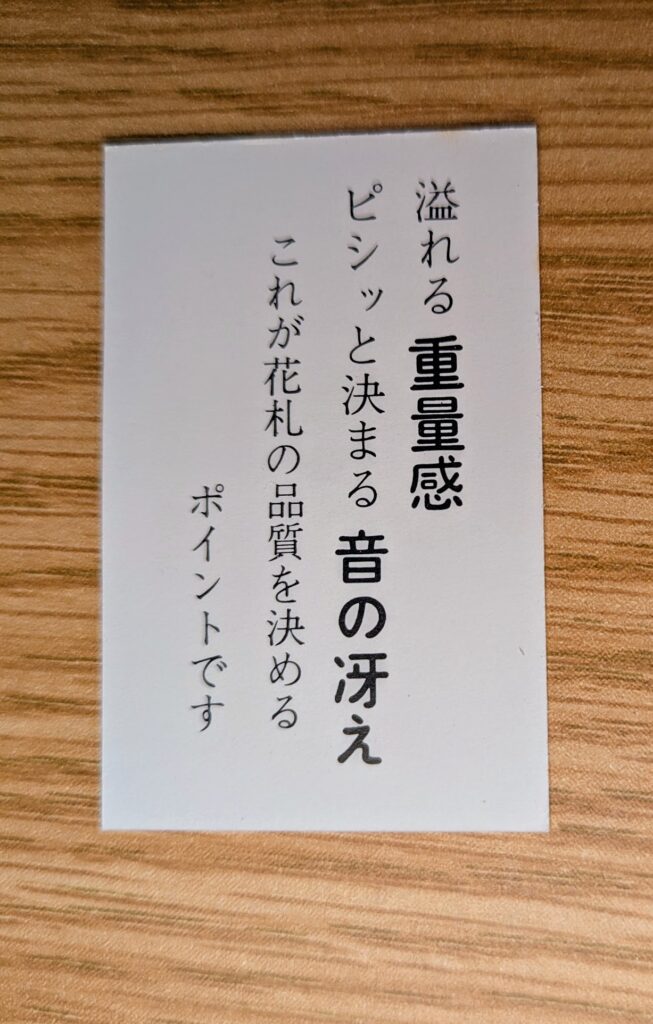 溢れる 重量感
ピシッと決まる 音の冴え
これが花札の品質を決める
ポイントです